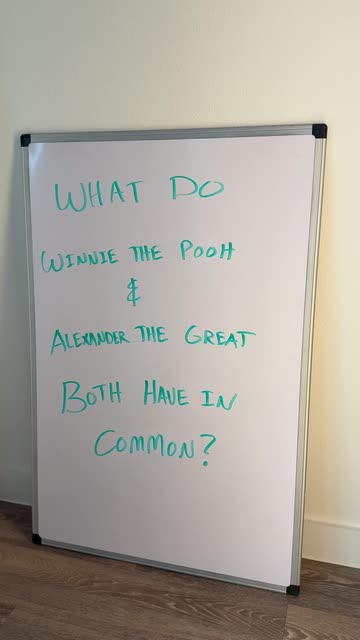 WHAT DO
WINNIE THE POOH
&
ALEXANDER THE GREAT
BOTH HAVE IN
COMMON?